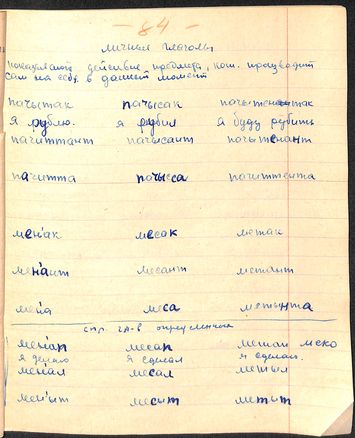 - 84 -
личные глаголы
показывают действие предмета, кот. производит
сам на себя в данный момент
пачытак пачысак пачытенытак
я рублю. я рубил я буду рубить
пачиттант пачысаит пачытенант
пачитта пачыса пачиттента
мен'ак месак метак
мен'аит месант метант
мен'а меса метынта
спр. гл-в определенная
мен'ап месап метап мско
я делаю я сделал я сделаю.
мен'ал месал метыл
мен'ыт месыт метыт